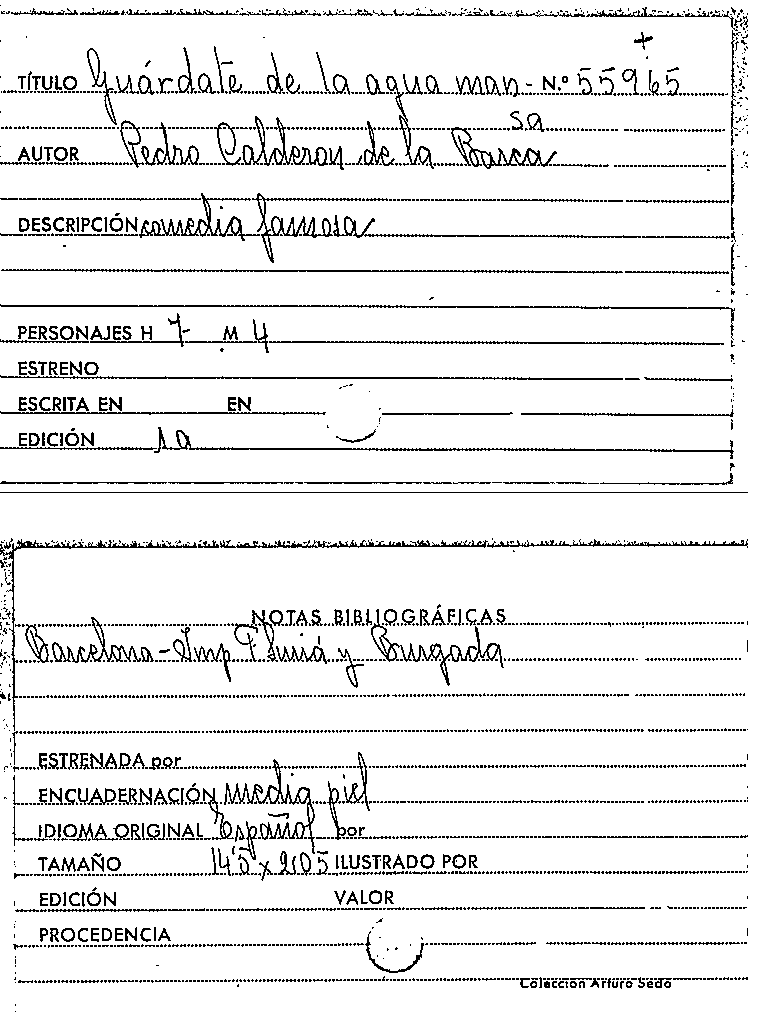 +
TÍTULO Guárdate de la agua man- N.º 55965
sa
AUTOR Pedro Calderon de la Barca
DESCRIPCIÓN comedia famosa
PERSONAJES H 7 M 4
ESTRENO
ESCRITA EN EN
EDICIÓN 1a
NOTAS BIBLIOGRÁFICAS
Barcelona - Imp y Brugada
ESTRENADA por
ENCUADERNACIÓN media piel
IDIOMA ORIGINAL Español por
TAMAÑO 14'5 x 20'5 ILUSTRADO POR
EDICIÓN VALOR
PROCEDENCIA
Colección Arturo Sedó